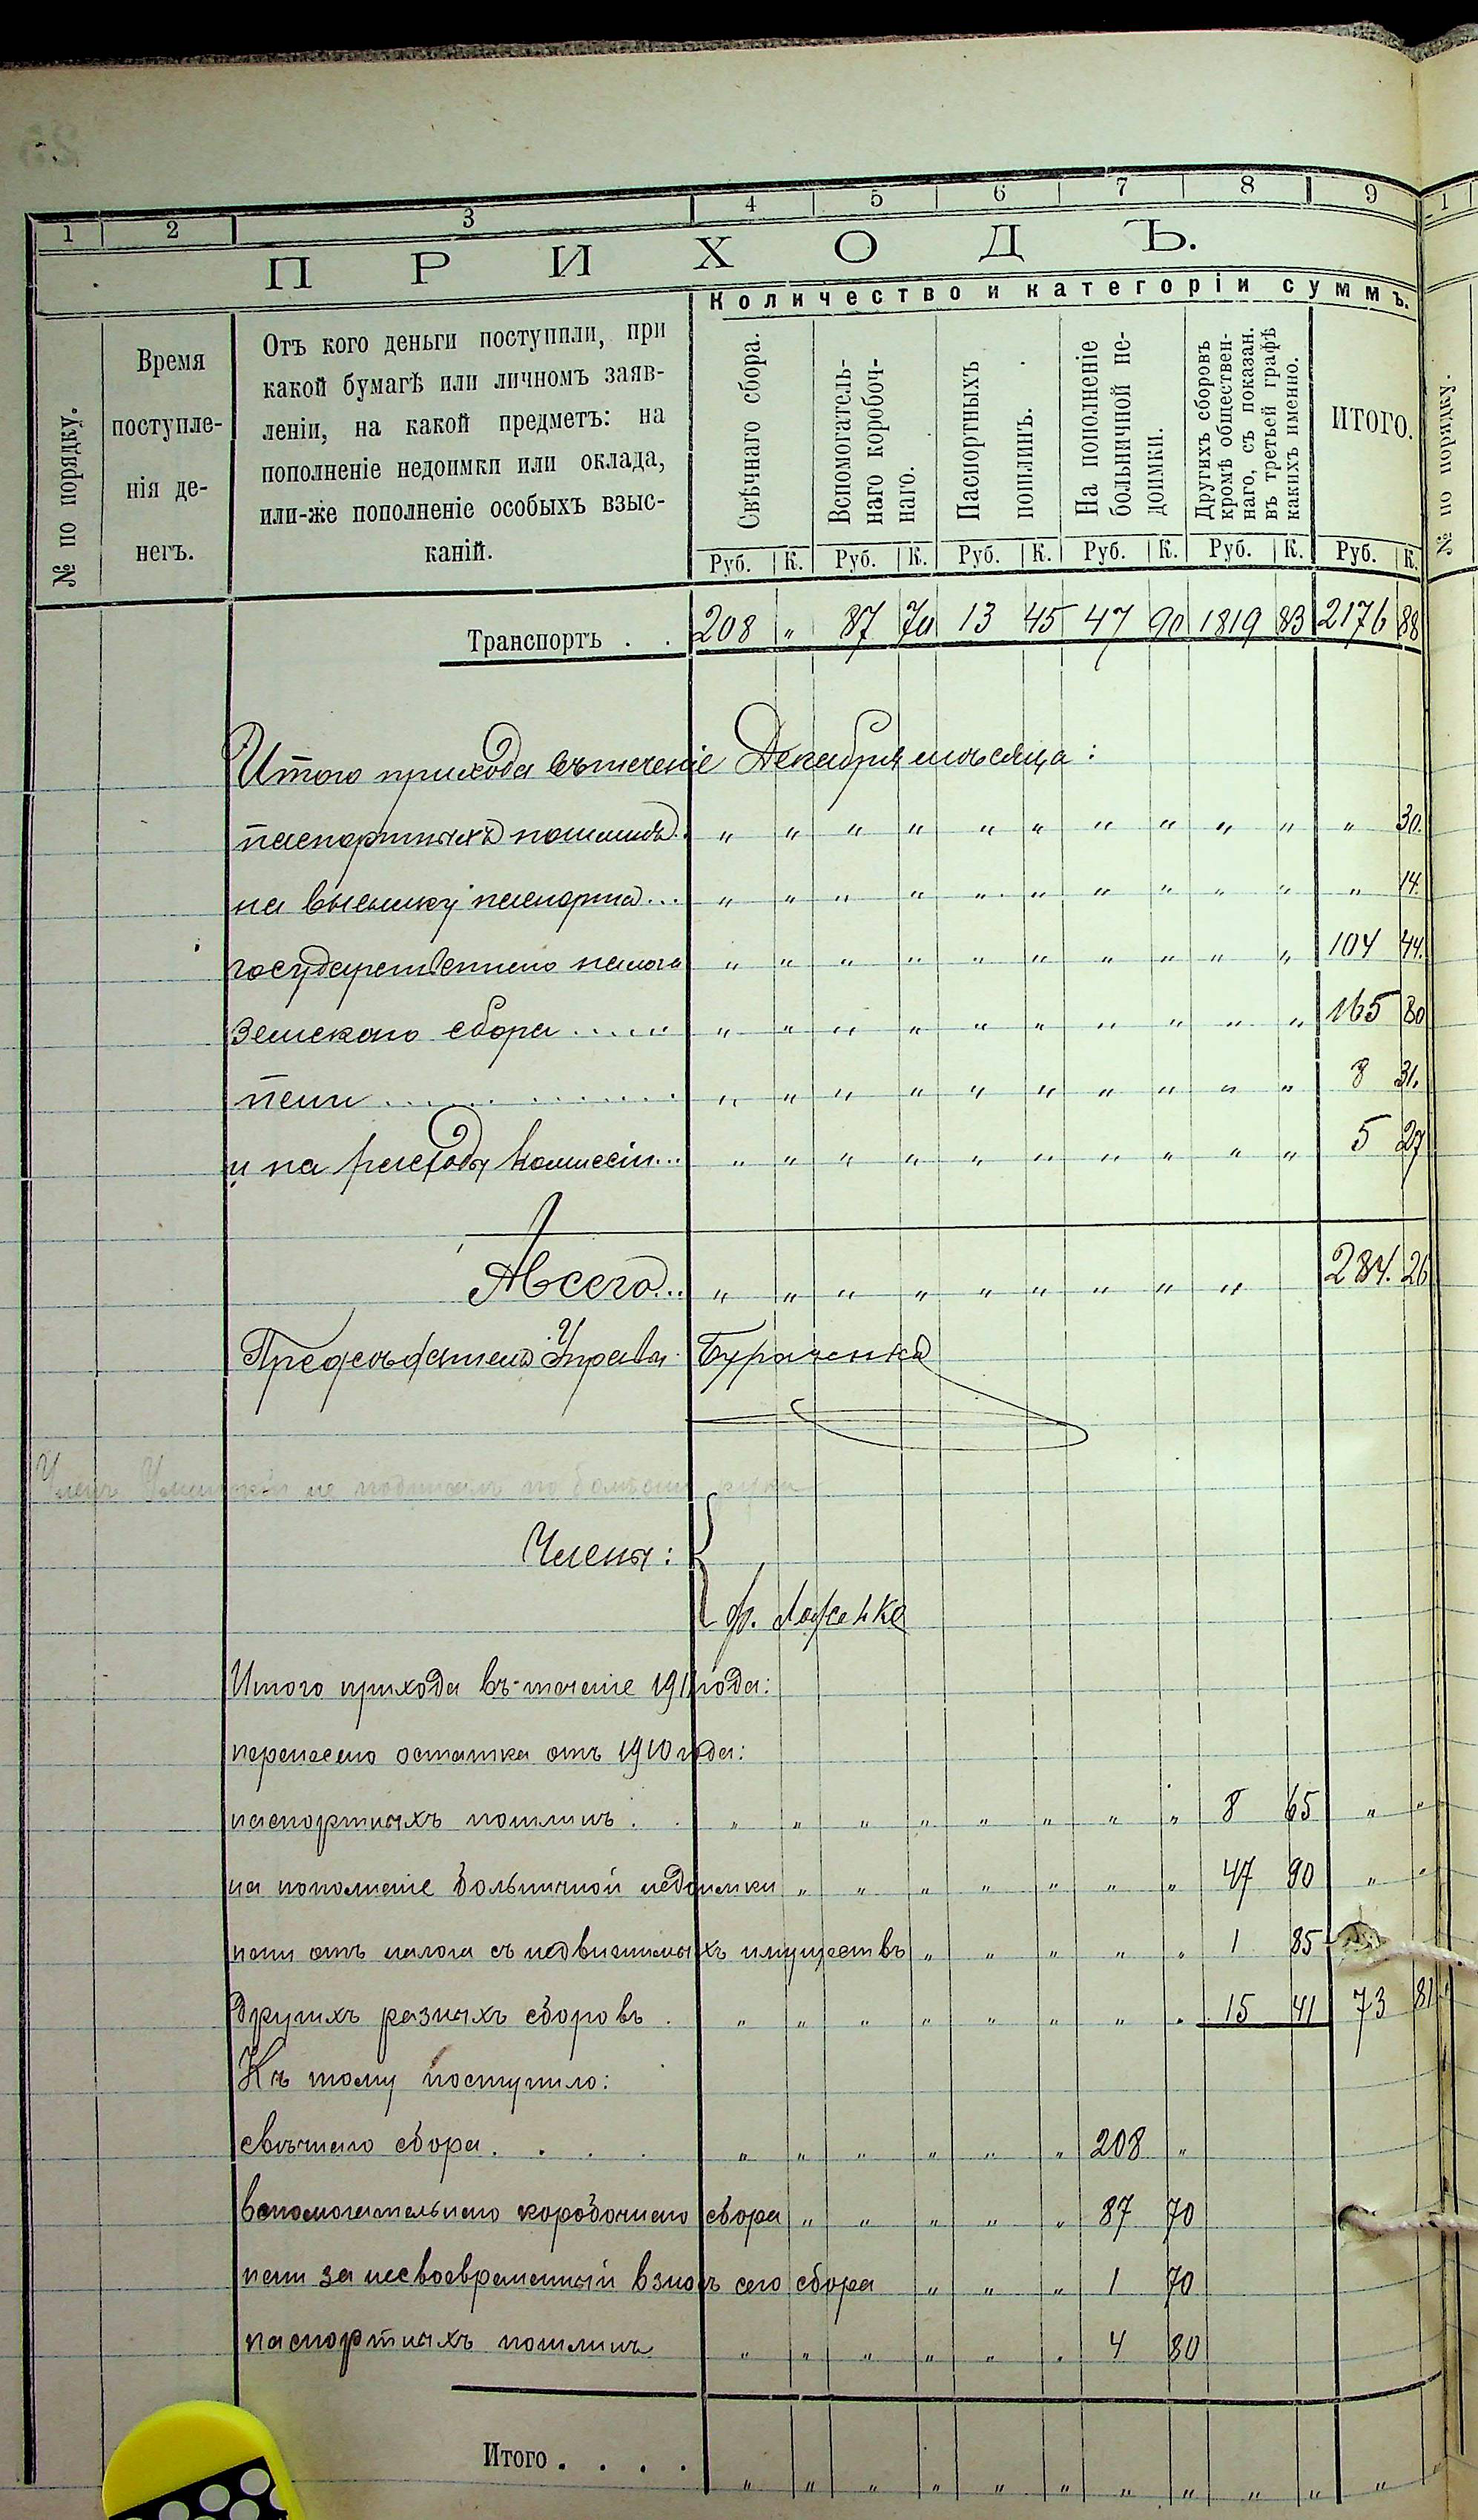 1 2 3 4 5 6 7 8 9 1
ПРИХОДЪ.
Количество и категоріи суммъ.
№ по порядку.
Время поступле-
нія де-
негъ.
Отъ кого деньги поступили, при
какой бумагѣ или личномъ заяв-
леніи, на какой предметъ: на
пополненіе недоимки или оклада,
или-же пополненіе особыхъ взыс-
каній.
Свѣчнаго сбора.
Вспомогатель-
наго коробоч-
наго.
Паспортныхъ
пошлинъ.
На пополненіе
больничной не-
доимки.
Другихъ сборовъ
кромѣ обществен-
наго, съ показан.
въ третьей графѣ
какихъ именно.
ИТОГО.
№ по порядку.
Руб. К. Руб. К. Руб. К. Руб. К. Руб. К. Руб. К.
Транспортъ . . 208 " 87 70 13 45 47 90 1819 83 2176 88
Итого прихода въ теченіе Декабря мѣсяца:
паспортныхъ пошлинъ. " " " " " " " " " " " 30.
на высылку паспорта... " " " " " " " " " " " 14.
государственнаго налога " " " " " " " " " " 104 44.
Земскаго сбора ...... " " " " " " " " " " 165 80
пени ............. " " " " " " " " " " 8 31.
и на расходы Коммисіи... " " " " " " " " " " 5 27
А всего... " " " " " " " " " 284. 26
Предсѣдатель Управы Бураченко
Членъ не подписалъ по болѣзни руки
Члены:
Ф.
Итого прихода въ-теченіе 1911 года:
перенесено остатка отъ 1910 года:
паспортныхъ пошлинъ . . " " " " " " " " 8 65 " "
на пополненіе больничной недоимки " " " " " " " 47 90 " "
пени отъ налога съ недвижимыхъ имуществъ " " " " " 1 85
другихъ разныхъ сборовъ . " " " " " " " " 15 41 73 81
Къ тому поступило:
свѣчнаго сбора . . . . " " " " " " 208 "
вспомогательнаго коробочнаго сбора " " " " " 87 70
пени за несвоевременный взносъ сего сбора " " " 1 70
паспортныхъ пошлинъ " " " " " " 4 80
Итого . . . . " " " " " " " " " " " "